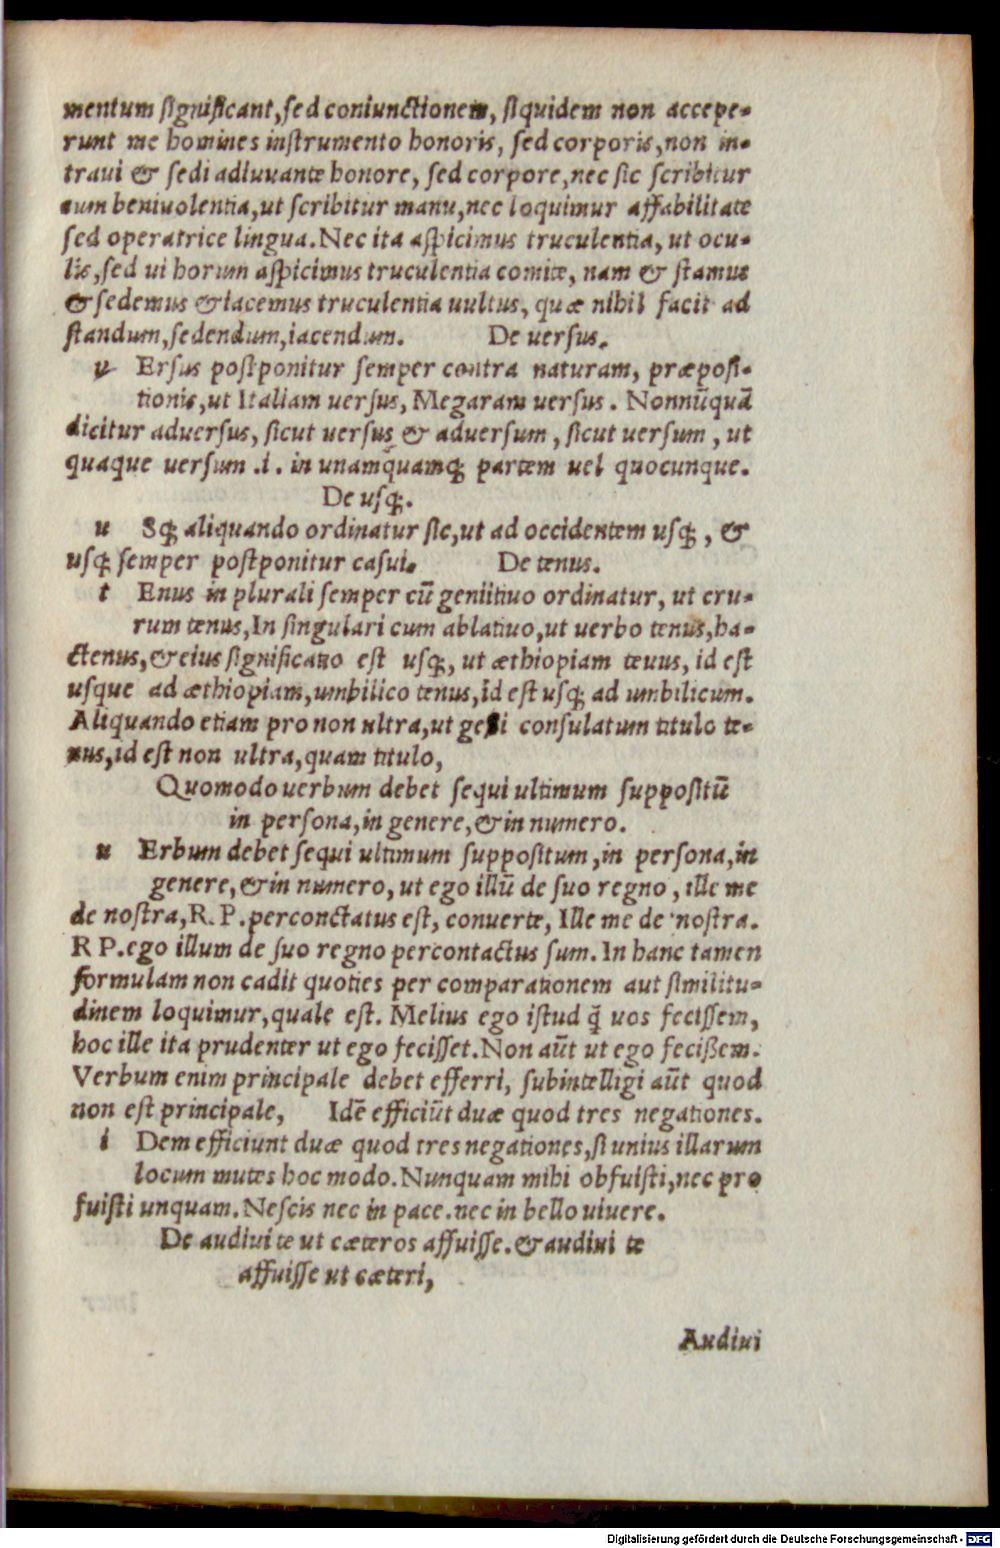 mentum significant,sed coniunctionem, siquidem non accepe-
runt me homines instrumento honoris, sed corporis,non in-
traui & sedi adiuuante honore, sed corpore,nec sic scribitur
cum beniuolentia,ut scribitur manu,nec loquimur affabilitate
sed operatrice lingua.Nec ita aspicimus truculentia, ut ocu-
lis,sed ui horum aspicimus truculentia comite, nam & stamus
& sedemus & iacemus truculentia uultus, quæ nihil facit ad
standum,sedendum,iacendum. De uersus.
u Ersus postponitur semper contra naturam, præposi-
tionis,ut Italiam uersus, Megaram uersus. Nonnūquā
dicitur aduersus, sicut uersus & aduersum, sicut uersum, ut
quaque uersum .i. in unamquamq; partem uel quocunque.
De usq;.
u Sq; aliquando ordinatur sic,ut ad occidentem usq;, &
usq; semper postponitur casui. De tenus.
t Enus in plurali semper cū geniitiuo ordinatur, ut cru-
rum tenus,In singulari cum ablatiuo,ut uerbo tenus,ha-
ctenus,& eius significatio est usq;, ut æthiopiam teuus, id est
usque ad æthiopiam,umbilico tenus,id est usq; ad umbilicum.
Aliquando etiam pro non ultra,ut gessi consulatum titulo te-
nus,id est non ultra,quam titulo,
Quomodo uerbum debet sequi ultimum suppositū
in persona,in genere,& in numero.
u Erbum debet sequi ultimum suppositum,in persona,in
genere,& in numero, ut ego illū de suo regno, ille me
de nostra,R.P.perconctatus est, conuerte, Ille me de nostra.
R P.ego illum de suo regno percontactus sum. In hanc tamen
formulam non cadit quoties per comparationem aut similitu-
dinem loquimur,quale est. Melius ego istud q̄ uos fecissem,
hoc ille ita prudenter ut ego fecisset.Non aūt ut ego fecißem.
Verbum enim principale debet efferri, subintelligi aūt quod
non est principale, Idē efficiūt duæ quod tres negationes.
i Dem efficiunt duæ quod tres negationes,si unius illarum
locum mutes hoc modo.Nunquam mihi obfuisti,nec pro
fuisti unquam.Nescis nec in pace.nec in bello uiuere.
De audiui te ut cæteros affuisse.& audiui te
affuisse ut cæteri,
Audiui
Digitalisierung gefördert durch die Deutsche Forschungsgemeinschaft - DFG